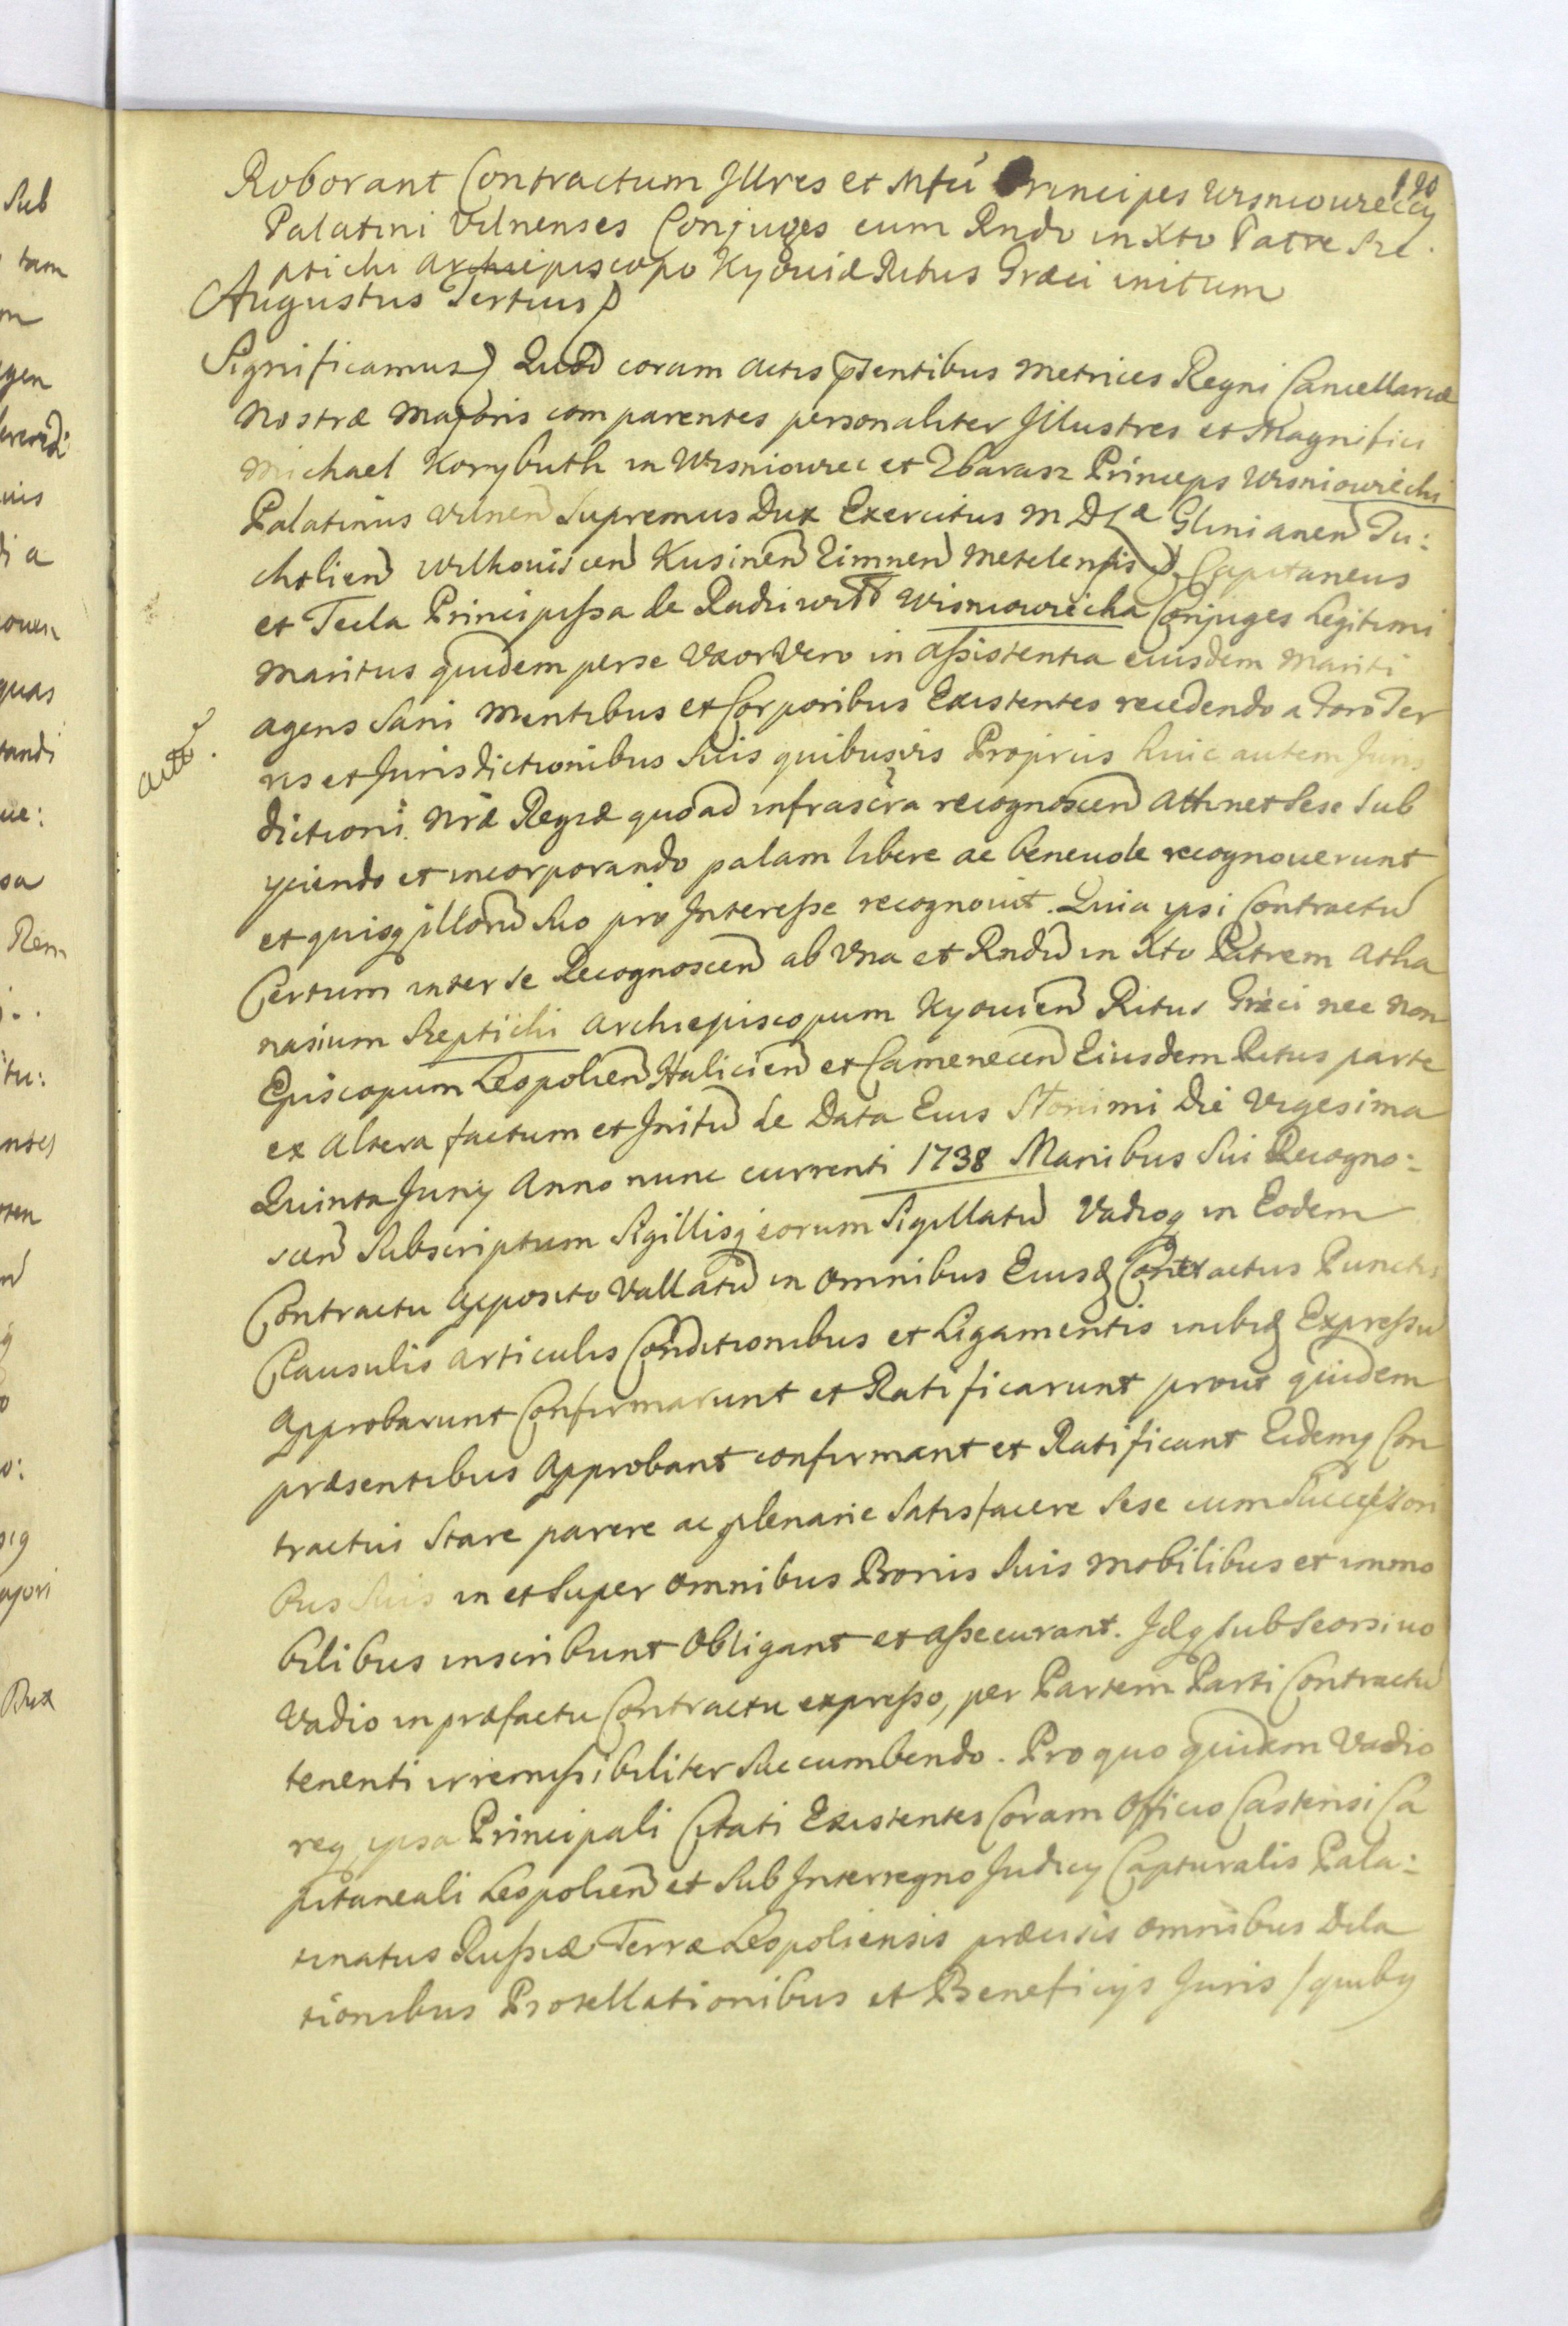 190
Roborant Contractum Illres et Mfci Principes Wisniowieccy
Palatini Vilnenses Conjuges cum Rndo in Xto Patre Sze
ptichi Archiepiscopo Kyoviæ Ritus Græci initum
Augustus Tertius
Significamus Quod coram actis pñtentibus Metrices Regni Cancellariæ
Nostræ Majoris comparentes personaliter Illustres et Magnifici
Michael Korybuth in Wisniowiec et Zbarasz Princeps Wisniowiecki
Palatinus Vilnen Supremus Dux Exercitus M D L Glinianen Tu:
cholien Wilkoviscen Kusinen Zimnen Metelensis Capitaneus
et Tecla Principissa de Radziwiłł Wisniowiecka Conjuges Legitimi
Maritus quidem per se Uxor Vero in assistentia eiusdem Mariti
agens Sani Mentibus et Corporibus Existentes recedendo a Foro Ter
ris et Jurisdictionibus Suis quibusvis Propriis huic autem Juris
dictioni Nræ Regiæ quoad infrascra recognoscen attinet Sese Sub
yciendo et incorporando palam libere ac benevole recognoverunt
et quisq illorũ Suo pro Interesse recognovit. Quia ipsi Contractũ
Certum inter se Recognoscen ab Vna et Rndũ in Xto Patrem Atha
nasium Szeptichi Archiepiscopum Kyovien Ritus Græci nec non
Episcopum Leopolien Halicien et Camenecen Eiusdem Ritus parte
ex altera factum et Initũ de Data Eius Słonimi Die Vigesima
Quinta Juny Anno nunc currenti 1738 Manibus Sui Recogno:
scen Subscriptum Sigillisq eorum Sigillatũ Vadioq in Eodem
Contractu apposito Vallatũ in omnibus Eiusd Contractus Punctis
Clausulis articulis Conditionibus et Ligamentis inibiq Expressũ
Approbarunt Confirmarunt et Ratificarunt prout quidem
præsentibus Approbant confirmant et Ratificant Eidemq Con
tractui Stare parere ac plenarie Satisfacere Sese cum Successori
bus Suis in et Super omnibus Bonis Suis mobilibus et immo
bilibus inscribunt Obligant et assecurant. Idq Sub Seorsivo
Vadio in præfactu Contractu expresso, per Partem Parti Contractũ
tenenti irremissibiliter Succumbendo. Pro quo quidem Vadio
req ipsa Principali Citati Existentes Coram Officio Castrensi Ca
pitaneali Leopolien et Sub Interregno Judicy Capturalis Pala:
tinatus Russiæ Terræ Leopoliensis præcisis omnibus Dila
tionibus Protellationibus et Beneficys Juris / quiby